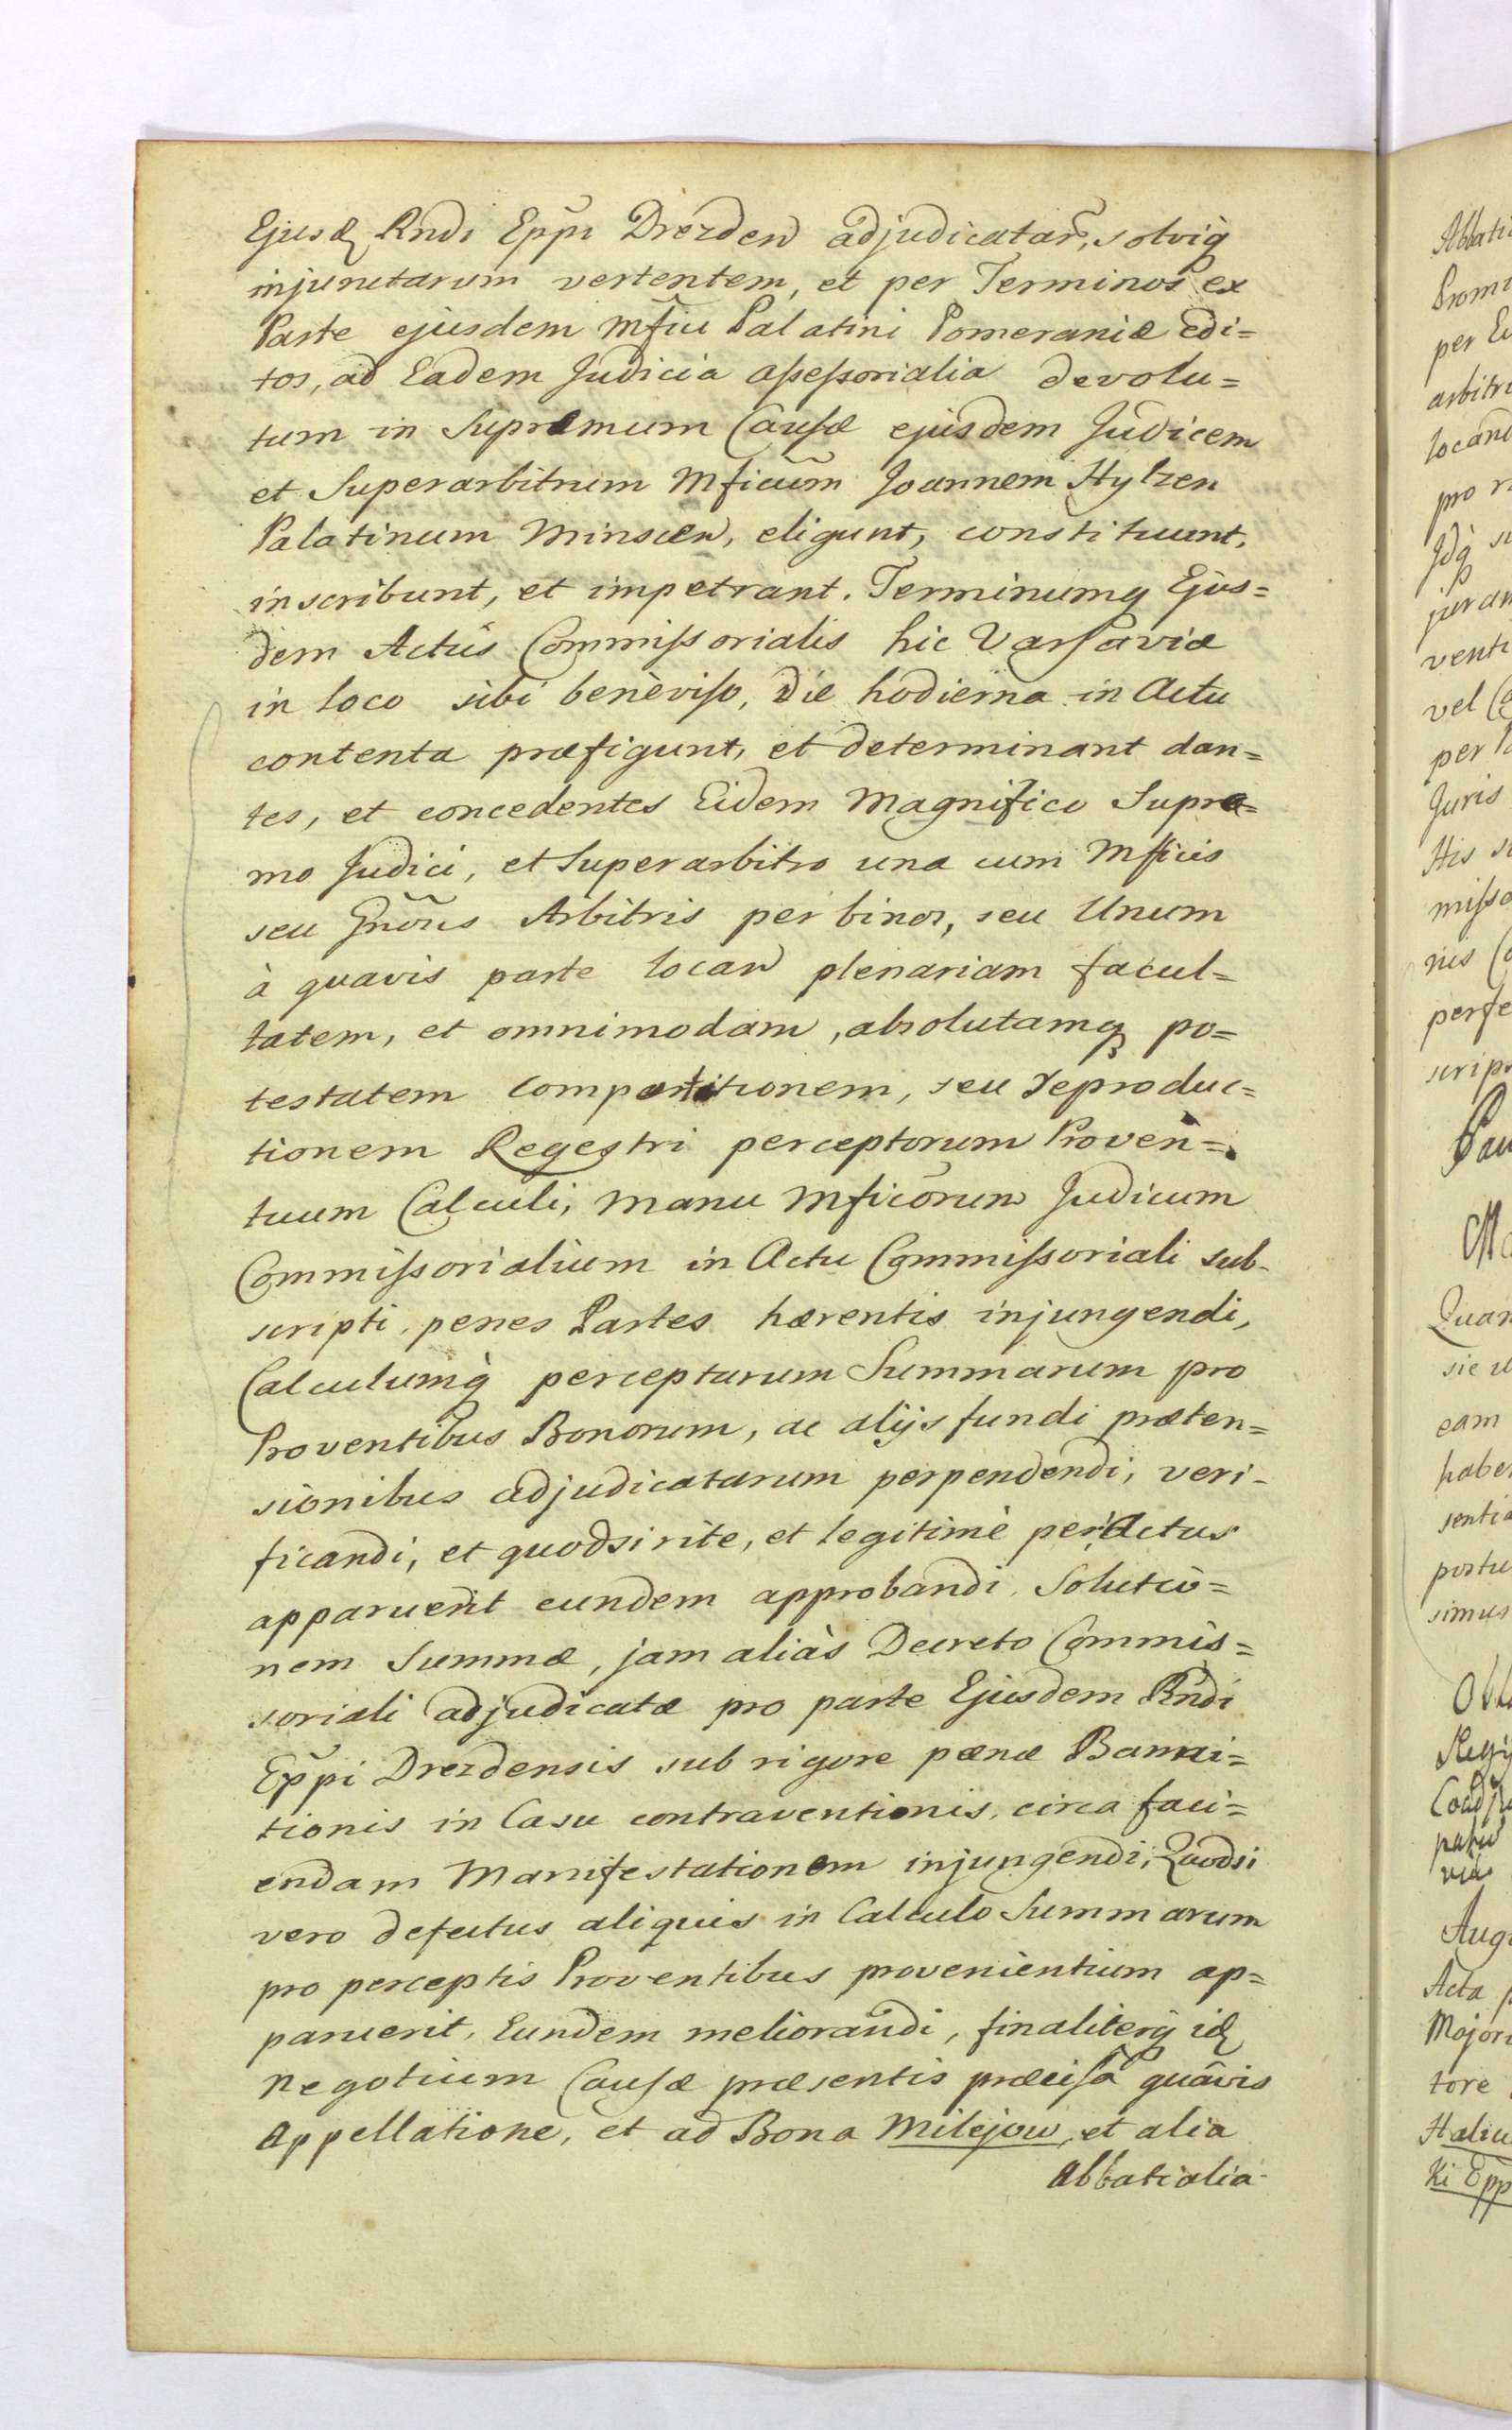 Ejusdę Rndi Eppi Drezdeń adjudicatar̃, solviq̀
injunctarum vertentem, et per Terminos ex
Parte ejusdem Mfici Palatini Pomeraniæ edi=
tos, ad Eadem Judicia aſseſsorialia devolu=
tum in Supremum Cauſæ ejusdem Judicem
et Superarbitrum Mficum̃ Joannem Hylzen
Palatinum Minscen, eligunt, constituunt,
inscribunt, et impetrant. Terminumq Ejus=
dem Actus Commiſsorialis hic Varſaviæ
in loco sibi benèviſo, die hodierna in Actu
contenta præfigunt, et determinant dan=
tes, et concedentes Eidem Magnifico Supre=
mo Judici, et Superarbitro una cum Mficis
seu Gñosis Arbitris per binos, seu Unum
à quavis parte locan plenariam facul=
tatem, et omnimodam, absolutamq po=
testatem comportitionem, seu reproduc=
tionem Regestri perceptorum Proven=
tuum Calculi, manu Mficorum Judicum
Commiſsorialium in Actu Commiſsoriali sub-
scripti, penes Partes hærentis injungendi,
Calculumq̀ perceptarum Summarum pro
Proventibus Bonorum, ac alijs fundi præten=
sionibus adjudicatarum perpendendi, veri-
ficandi, et quodsi rite, et legitimè peractus
apparuerit eundem approbandi. Solutio=
nem Summæ, jam aliàs Decreto Commis=
soriali adjudicatæ pro parte Ejusdem Rndi
Eppi Drezdensis sub rigore pænæ Banni=
tionis in Casu contraventionis, circa faci=
endam Manifestationem injungendi; Quodsi
vero defectus aliquis in Calculo Summarum
pro perceptis Proventibus provenientium ap=
paruerit, Eundem meliorandi, finaliterq̀ idę
negotium Cauſæ præsentis præciſâ quâvis
Appellatione, et ad Bona Milejow, et alia
Abbatialia-